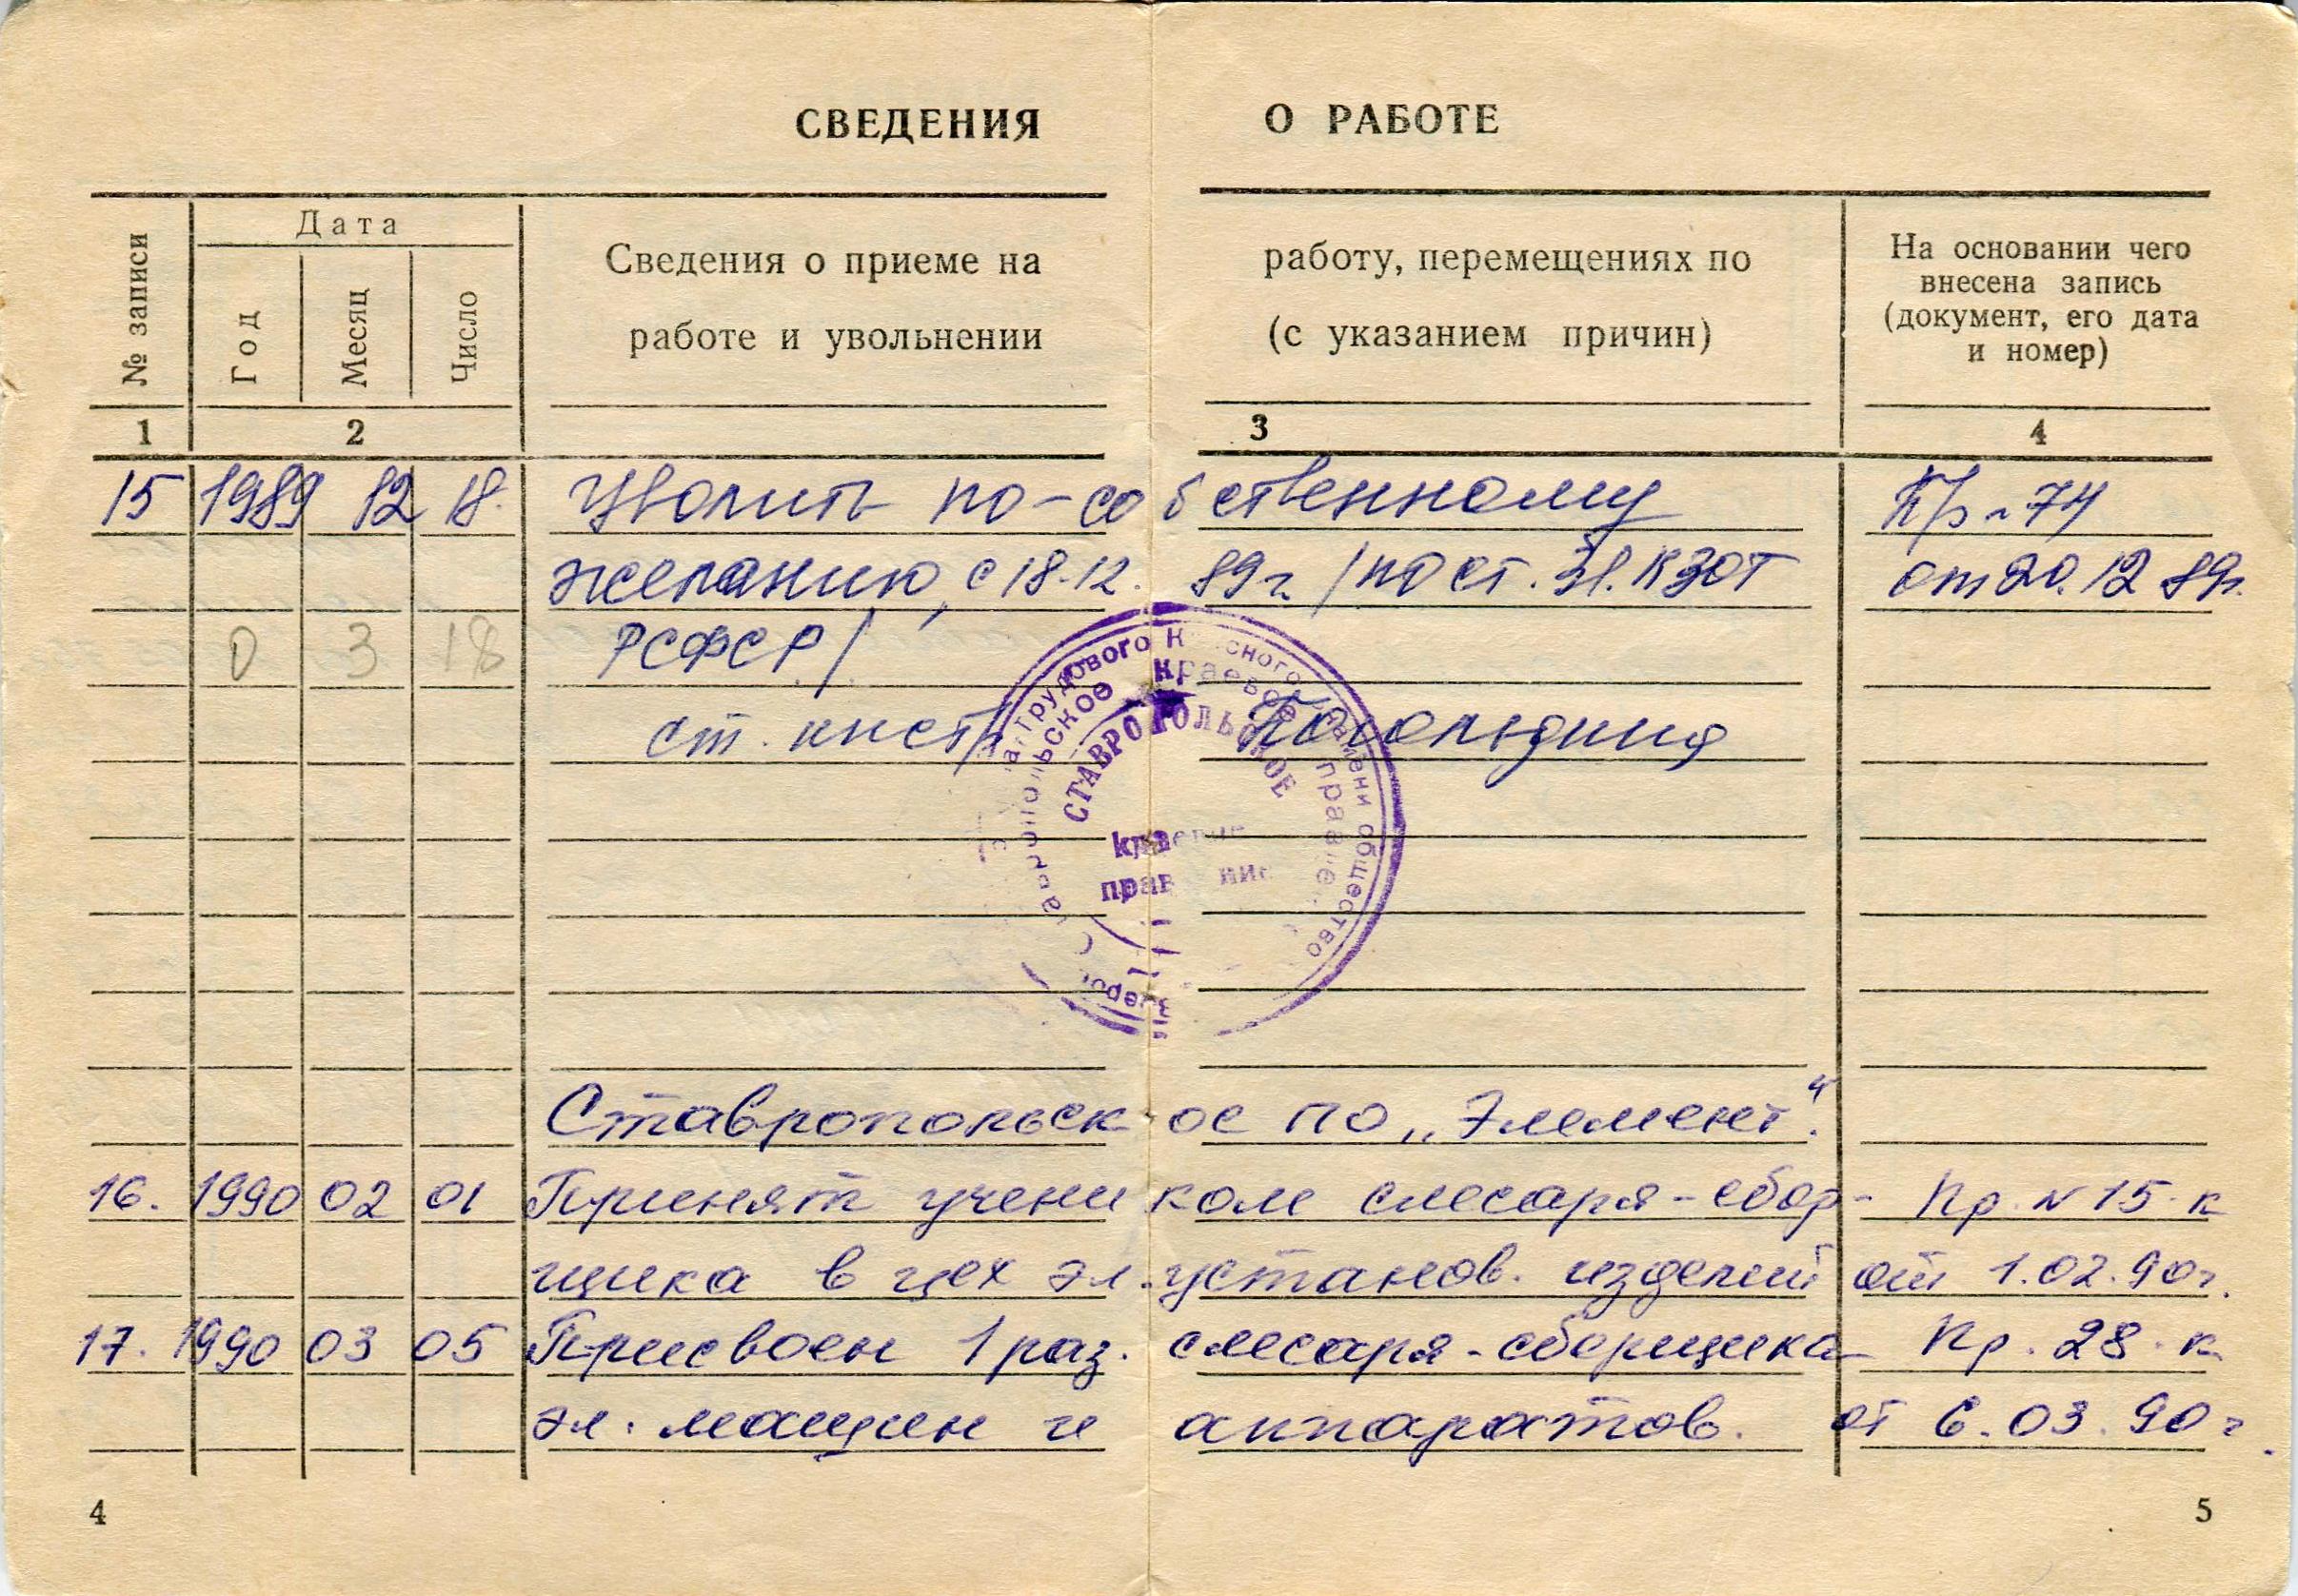 СВЕДЕНИЯ О РАБОТЕ
№ записи
Дата
Год
Месяц
Число
Сведения о приеме на работу, перемещениях по
работе и увольнении (с указанием причин)
На основании чего
внесена запись
(документ, его дата
и номер)
1 2 3 4
15 1989 12 18. Уволить по-собственному Пр-74
желанию, с 18.12.89г. /по ст. 31. КЗОТ от 20.12 89г.
0 3 18 РСФСР/
ст. инсп
Трудового Красного Знамени общество
Ставропольское краевое правление
СТАВРОПОЛЬСКОЕ
краевое
правление
Ставропольское ПО „Элемент".
16. 1990 02 01 Принят учеником слесаря-сбор- Пр. N 15-к
щика в цех эл.установ. изделий от 1.02.90г.
17. 1990 03 05 Присвоен 1 раз. слесаря-сборщика Пр. 28-к
эл. машин и аппаратов. от 6.03.90г.
4
5